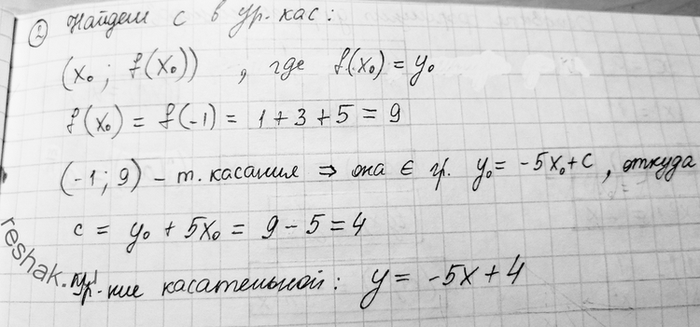 ② Найдем с в ур. кас:
(x₀; f(x₀)), где f(x₀) = y₀
f(x₀) = f(-1) = 1 + 3 + 5 = 9
(-1; 9) - т. касания ⇒ она ∈ гр. y₀ = -5x₀ + c, откуда
c = y₀ + 5x₀ = 9 - 5 = 4
ур-ние касательной: y = -5x + 4
reshak.ru